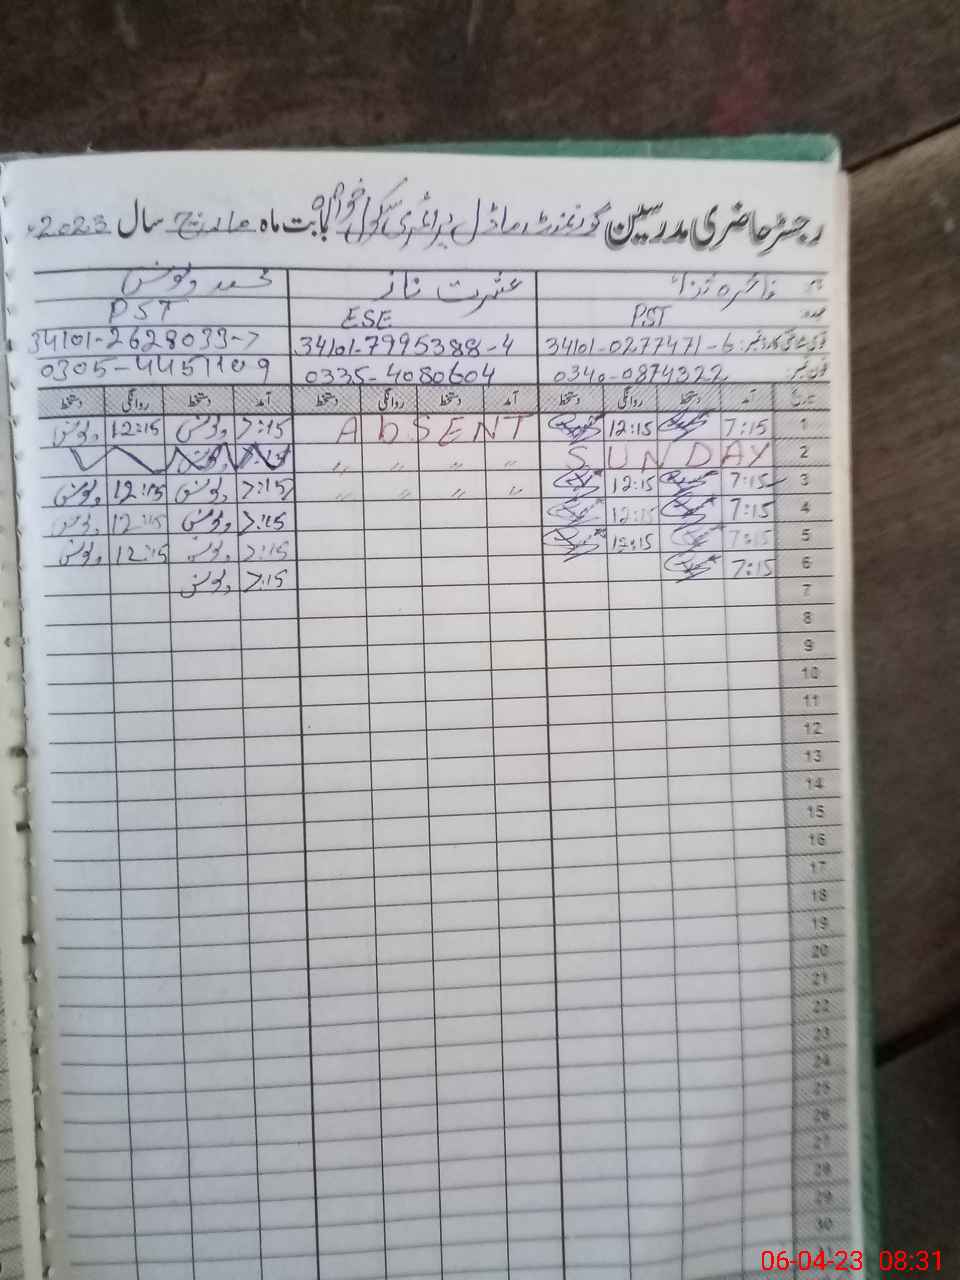 رجسٹر حاضری مدرسین گورنمنٹ ماڈل پرائمری سکول بابت ماہ مارچ سال 2023ء
نام عشرت ناز محمد یونس
عہدہ PST ESE PST
قومی شناختی کارڈ نمبر: 34101-0277471-6 34101-7995388-4 34101-2628033-7
فون نمبر: 0340-0874322 0335-4080604 0305-4451109
تاریخ آمد دستخط روانگی دستخط آمد دستخط روانگی دستخط آمد دستخط روانگی دستخط
1 7:15 12:15 ABSENT 7:15 یونس 12:15 یونس
2 SUNDAY " " " " 7:15 یونس
3 7:15 12:15 " " " " 7:15 یونس 12:15 یونس
4 7:15 12:15 7:15 یونس 12:15 یونس
5 7:15 12:15 7:15 یونس 12:15 یونس
6 7:15 7:15 یونس
7
8
9
10
11
12
13
14
15
16
17
18
19
20
21
22
23
24
25
26
27
28
29
30
31
06-04-23 08:31